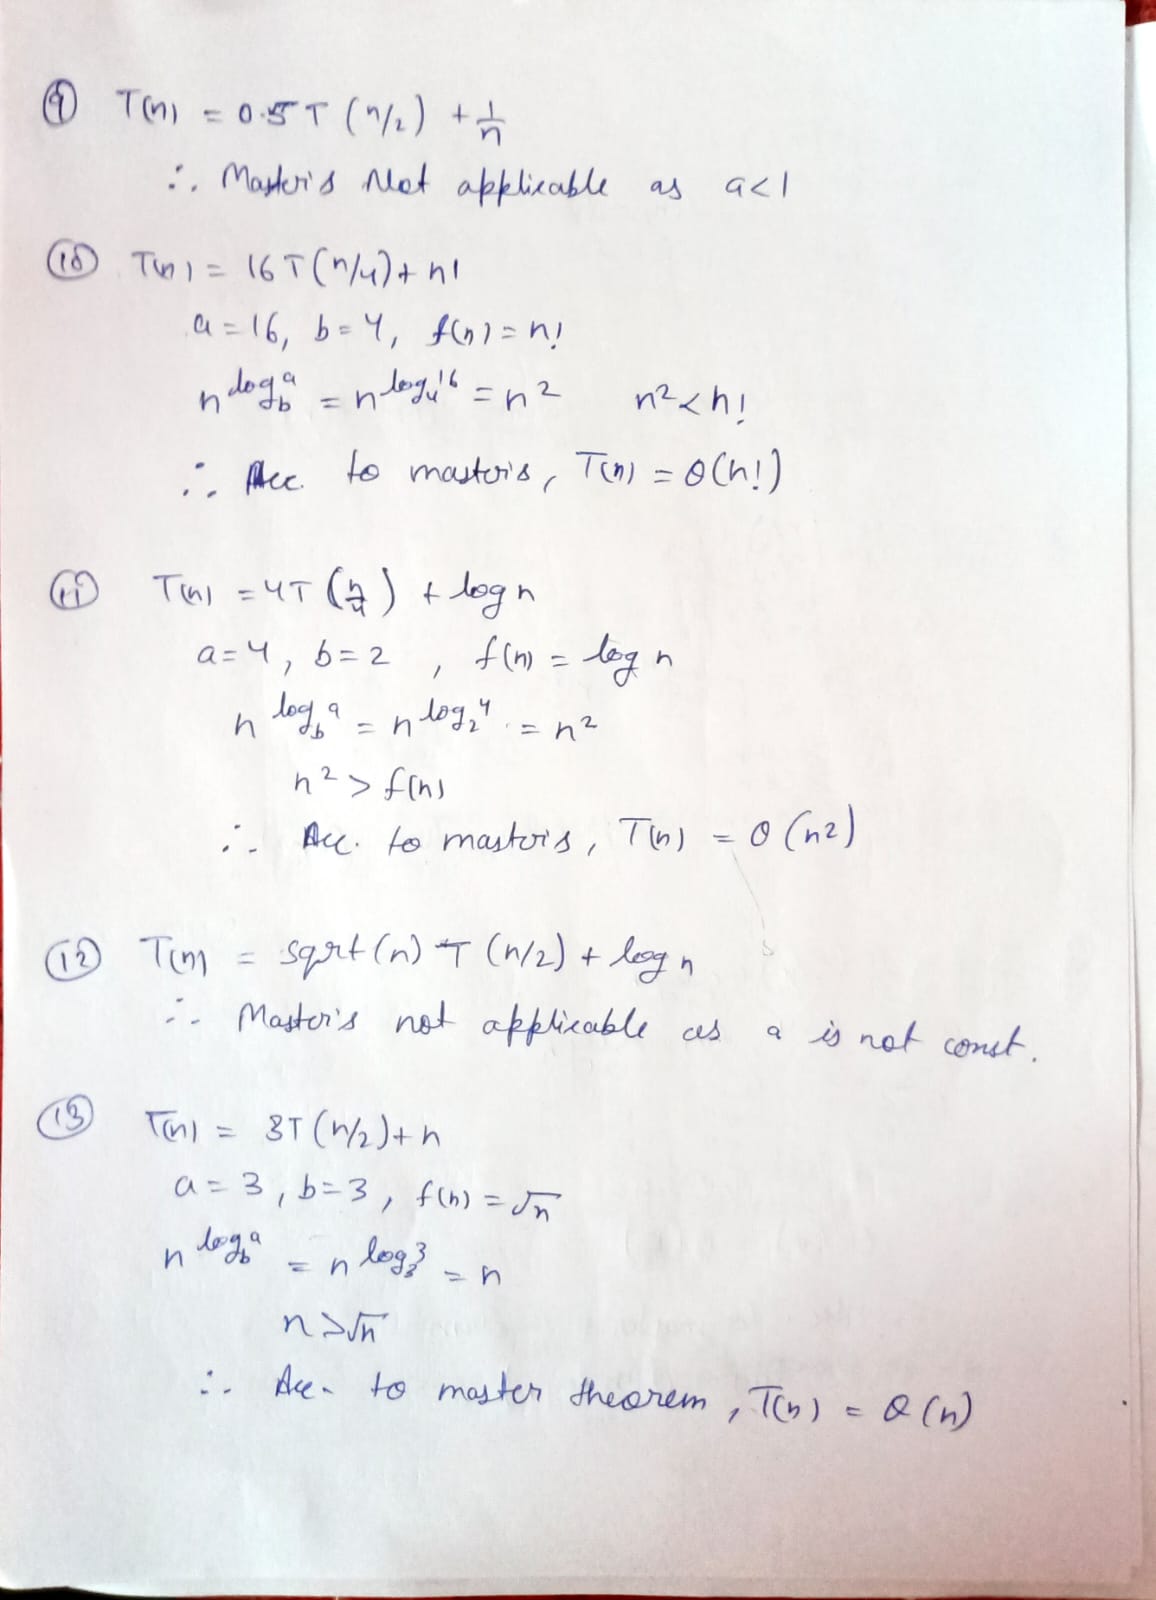 ⑨ T(n) = 0.5 T (n/2) + 1/n
∴ Master's Not applicable as a<1
⑩ T(n) = 16 T (n/4) + n!
a = 16, b = 4, f(n) = n!
n^log_b a = n^log_4 16 = n² n² < n!
∴ Acc. to master's, T(n) = θ(n!)
⑪ T(n) = 4T (n/4) + log n
a = 4, b = 2, f(n) = log n
n^log_b a = n^log_2 4 = n²
n² > f(n)
∴ Acc. to master's, T(n) = θ (n²)
⑫ T(n) = sqrt(n) T (n/2) + log n
∴ Master's not applicable as a is not const.
⑬ T(n) = 3T (n/2) + n
a = 3, b = 3, f(n) = √n
n^log_b a = n^log_3 3 = n
n > √n
∴ Acc. to master theorem, T(n) = θ (n)